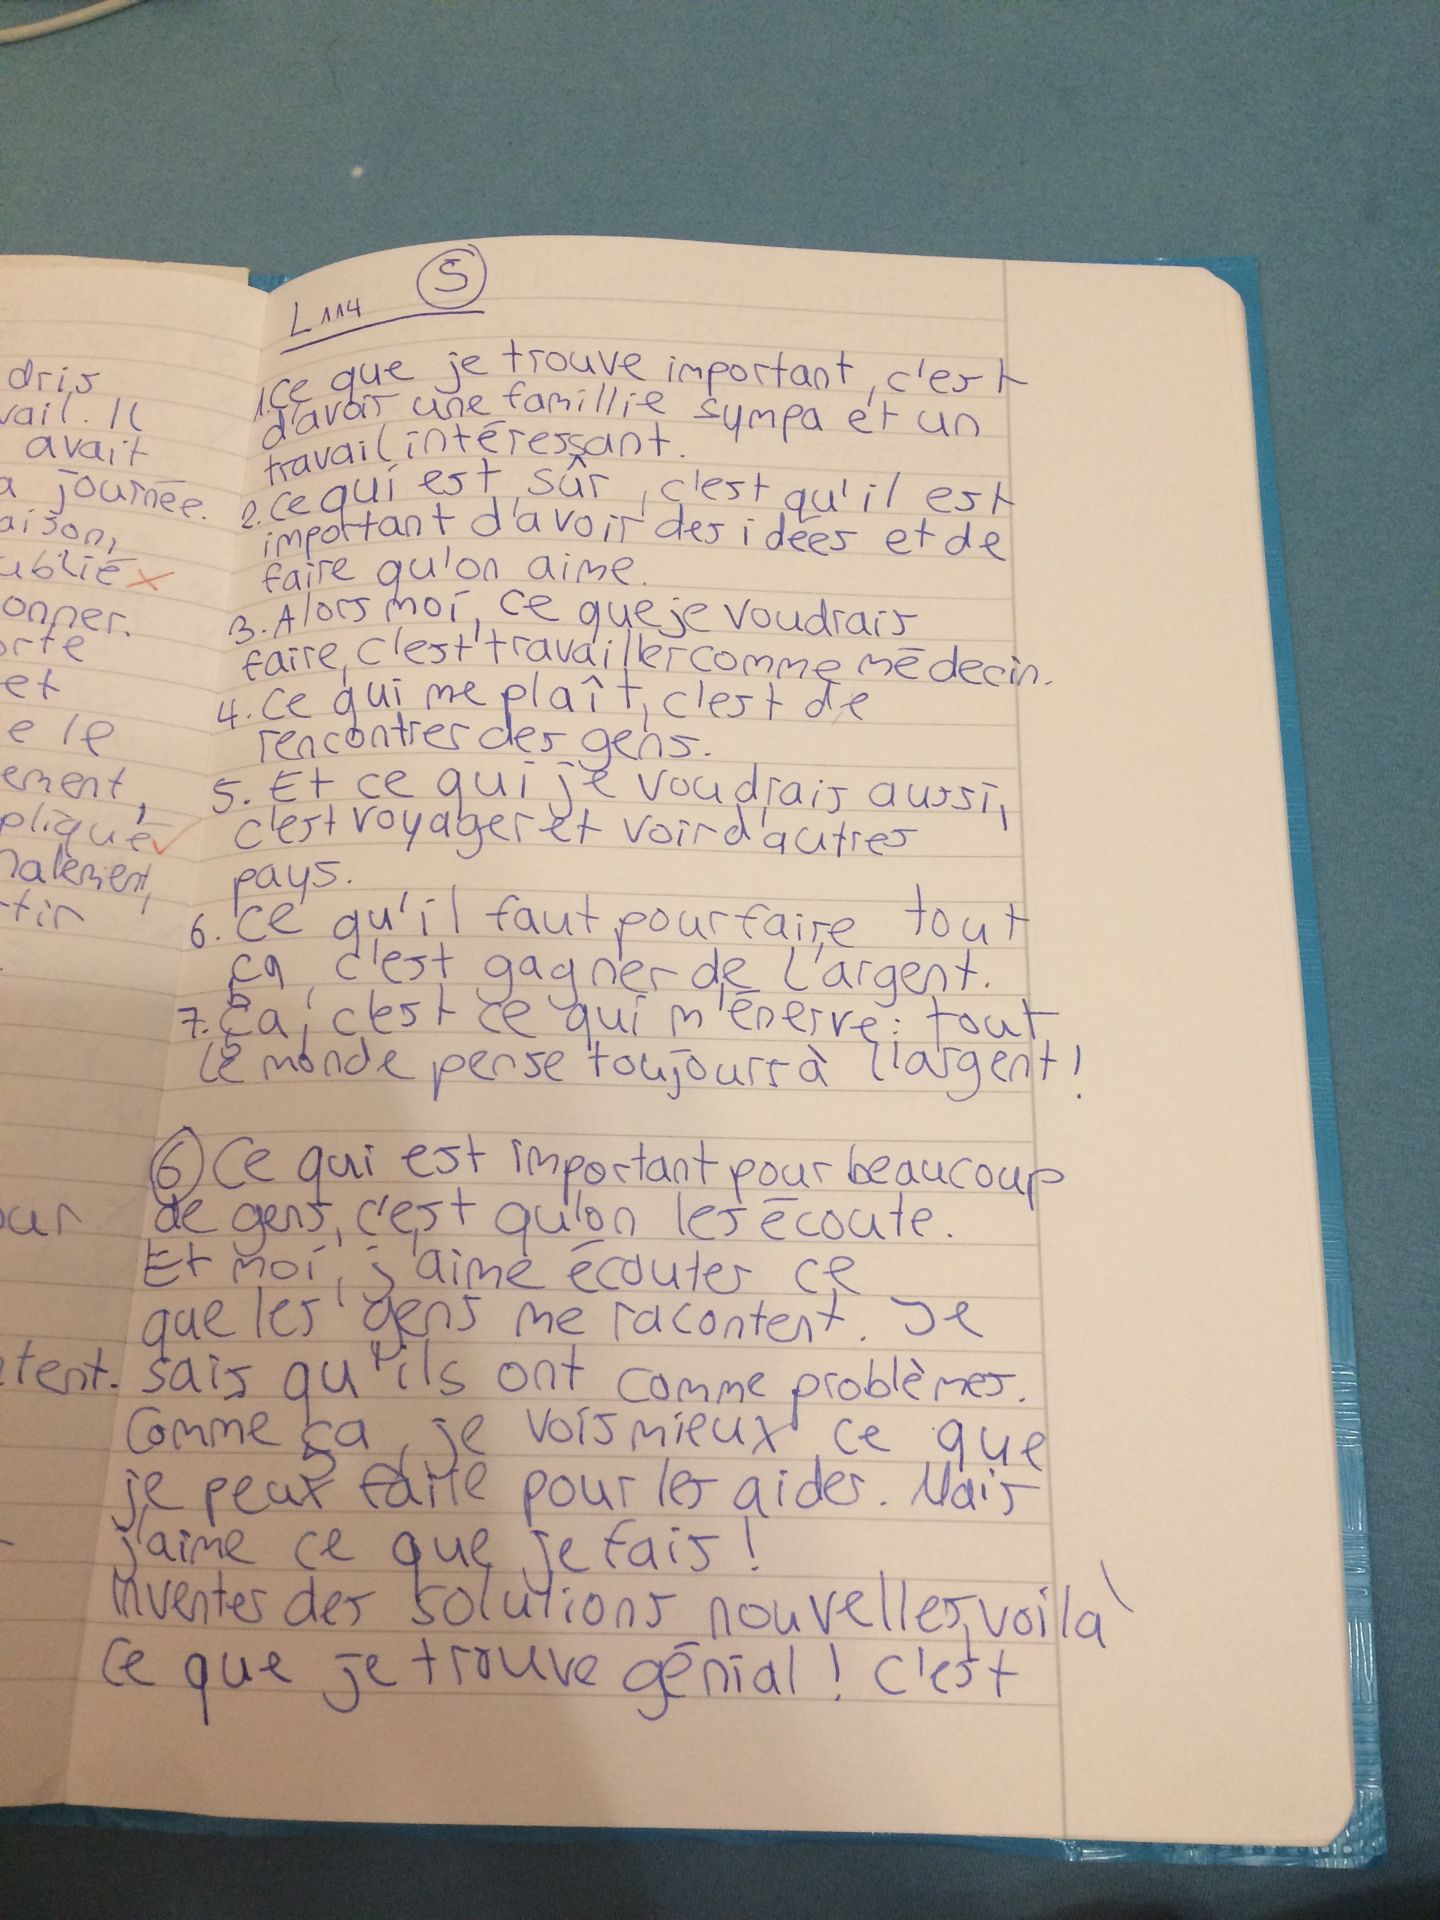 dris
vail. Il
avait
a journée.
aison,
ublié x
onner.
orte
et
e le
ement,
pliqué
nalement,
tir
our
tent.
L114 5
1. Ce que je trouve important, c'est
d'avoir une famillie sympa et un
travail intéressant.
2. Ce qui est sûr, c'est qu'il est
important d'avoir des idées et de
faire qu'on aime.
3. Alors moi, ce que je voudrais
faire, c'est travailler comme médecin.
4. Ce qui me plaît, c'est de
rencontrer des gens.
5. Et ce qui je voudrais aussi,
c'est voyager et voir d'autres
pays.
6. Ce qu'il faut pour faire tout
ça, c'est gagner de l'argent.
7. Ça, c'est ce qui m'énerve: tout
le monde pense toujours à l'argent!
6 Ce qui est important pour beaucoup
de gens, c'est qu'on les écoute.
Et moi, j'aime écouter ce
que les gens me racontent. Je
sais qu'ils ont comme problèmes.
Comme ça, je vois mieux ce que
je peux faire pour les aider. Mais
j'aime ce que je fais!
Inventer des solutions nouvelles, voilà
ce que je trouve génial! C'est